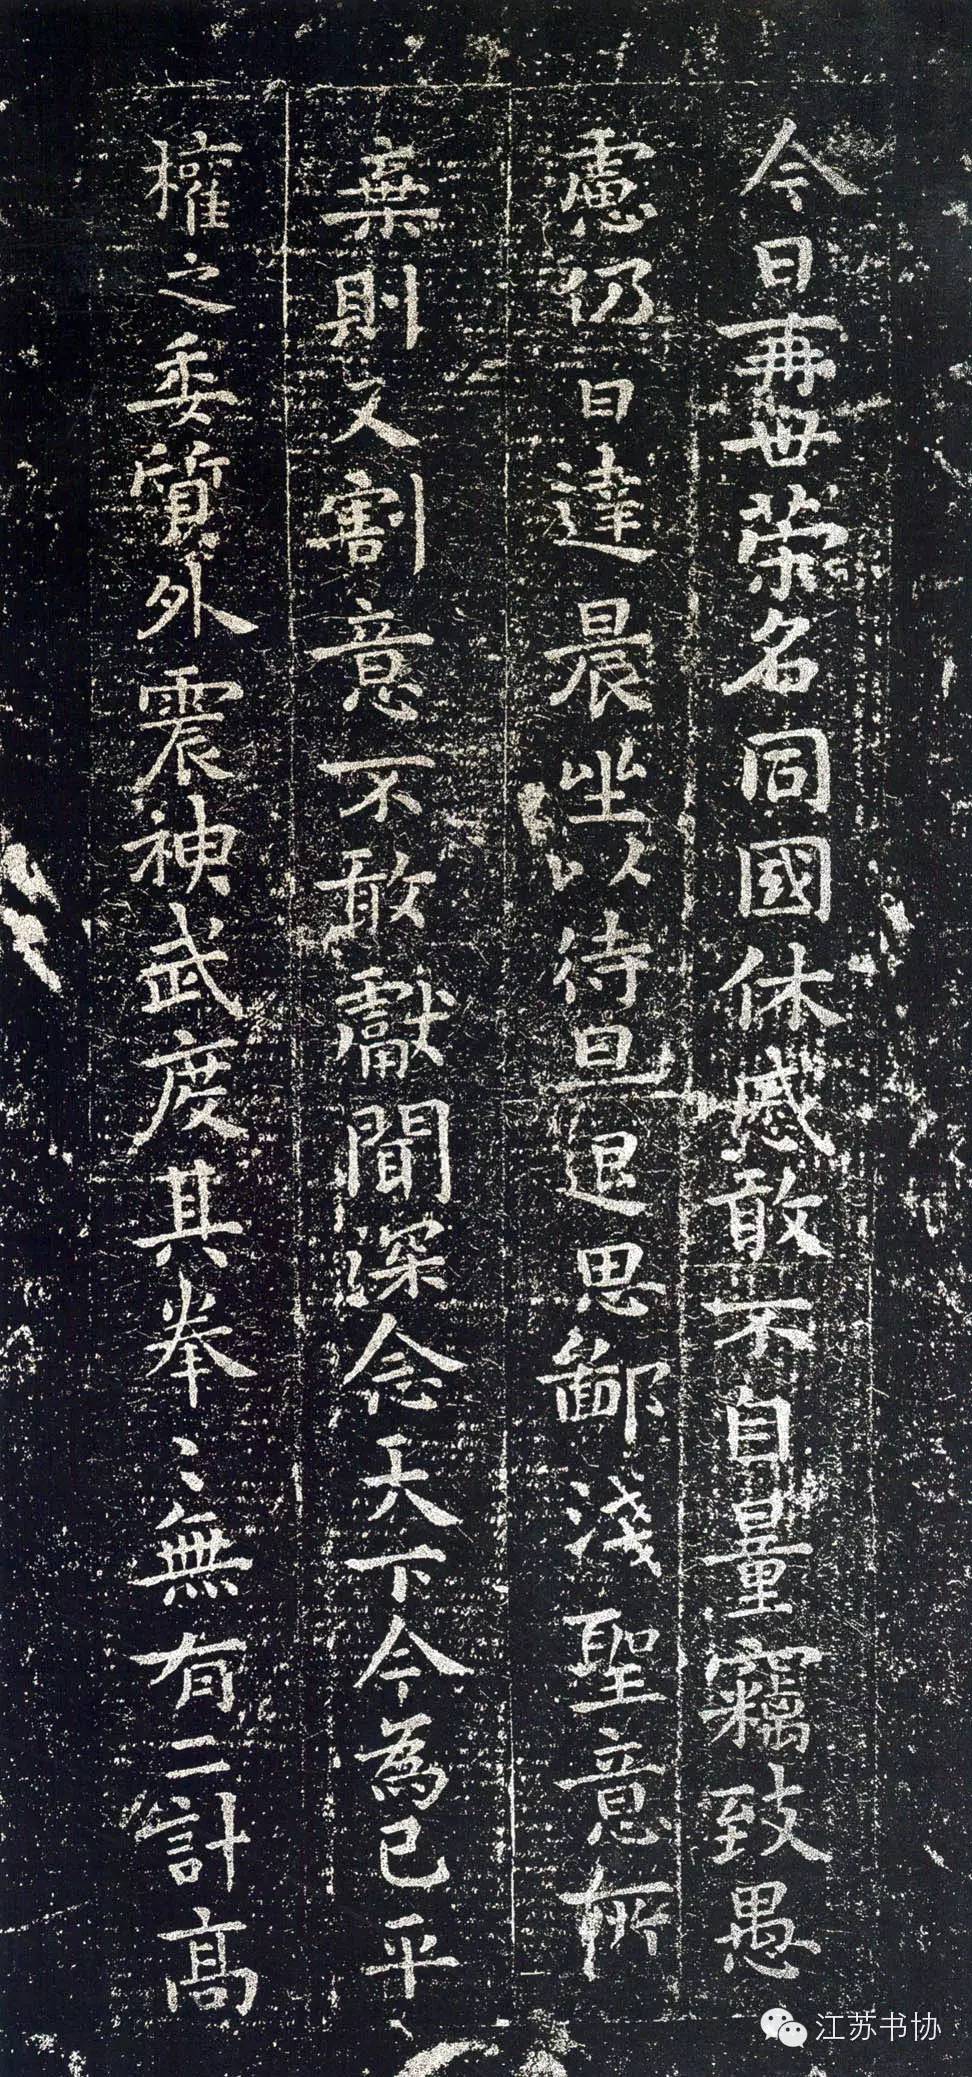 今日再世荣名同國休慼敢不自量竊致愚
慮仍日達晨坐以待旦退思鄙淺聖意所
棄則又割意不敢獻聞深念天下今為已平
權之委質外震神武度其拳〻無有二計高
江苏书协